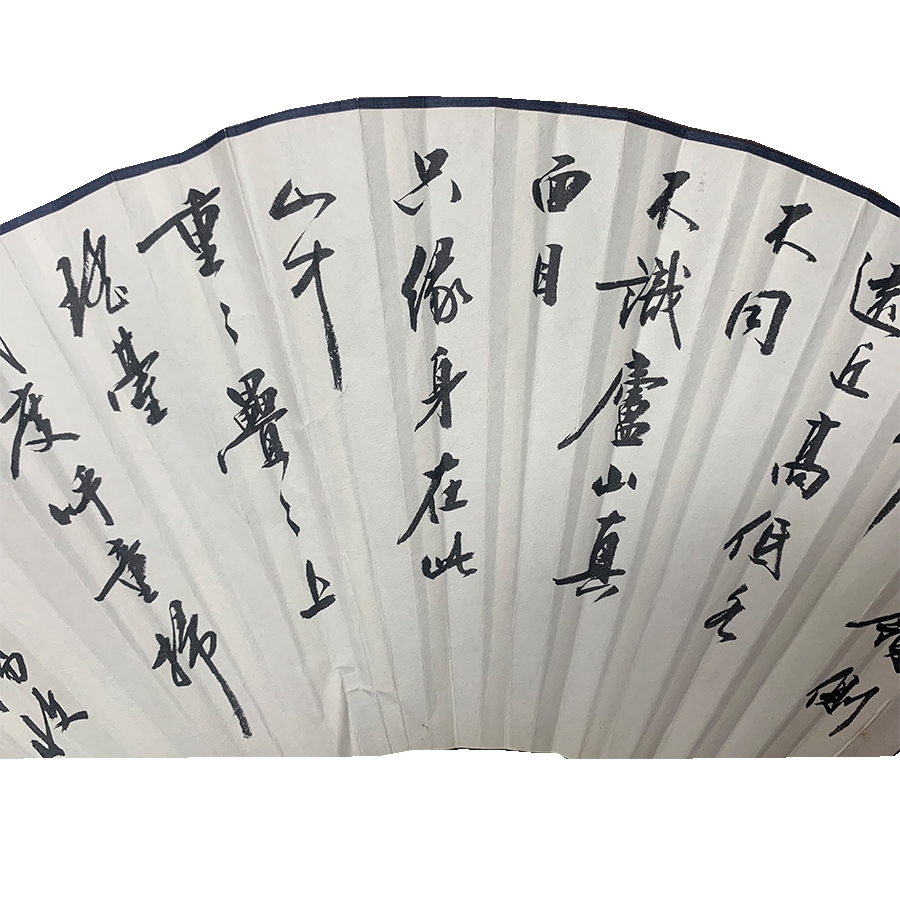 側
遠近高低各
不同
不識廬山真
面目
只緣身在此
山中
重〻疊〻上
瑤臺
度呼童掃